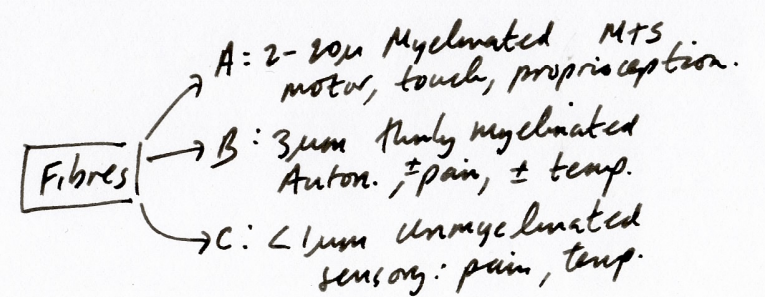 A: 2-20μ Myelinated M+S
motor, touch, proprioception.
Fibres
B: 3μm thinly myelinated
Auton., ± pain, ± temp.
C: <1μm Unmyelinated
sensory: pain, temp.